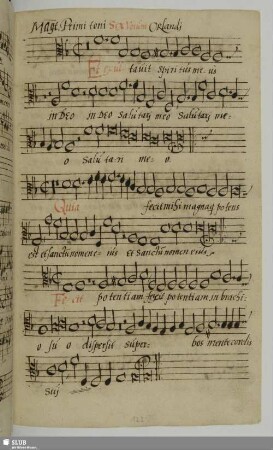 Magt. Primi toni Sex Vocum Orlandi
Et exul tavit Spiritus me us
in DEO in DEO Salutarj meo Salutarj me:
o Salutari meo
Quia fecit mihi magna q potens
est et sanctū nomen e= ius Et Sanctū nomen eius
Fecit potentiam, fecit potentiam, in brachi:
o su o dispersit super= bos mente cordis
Suj
SLUB